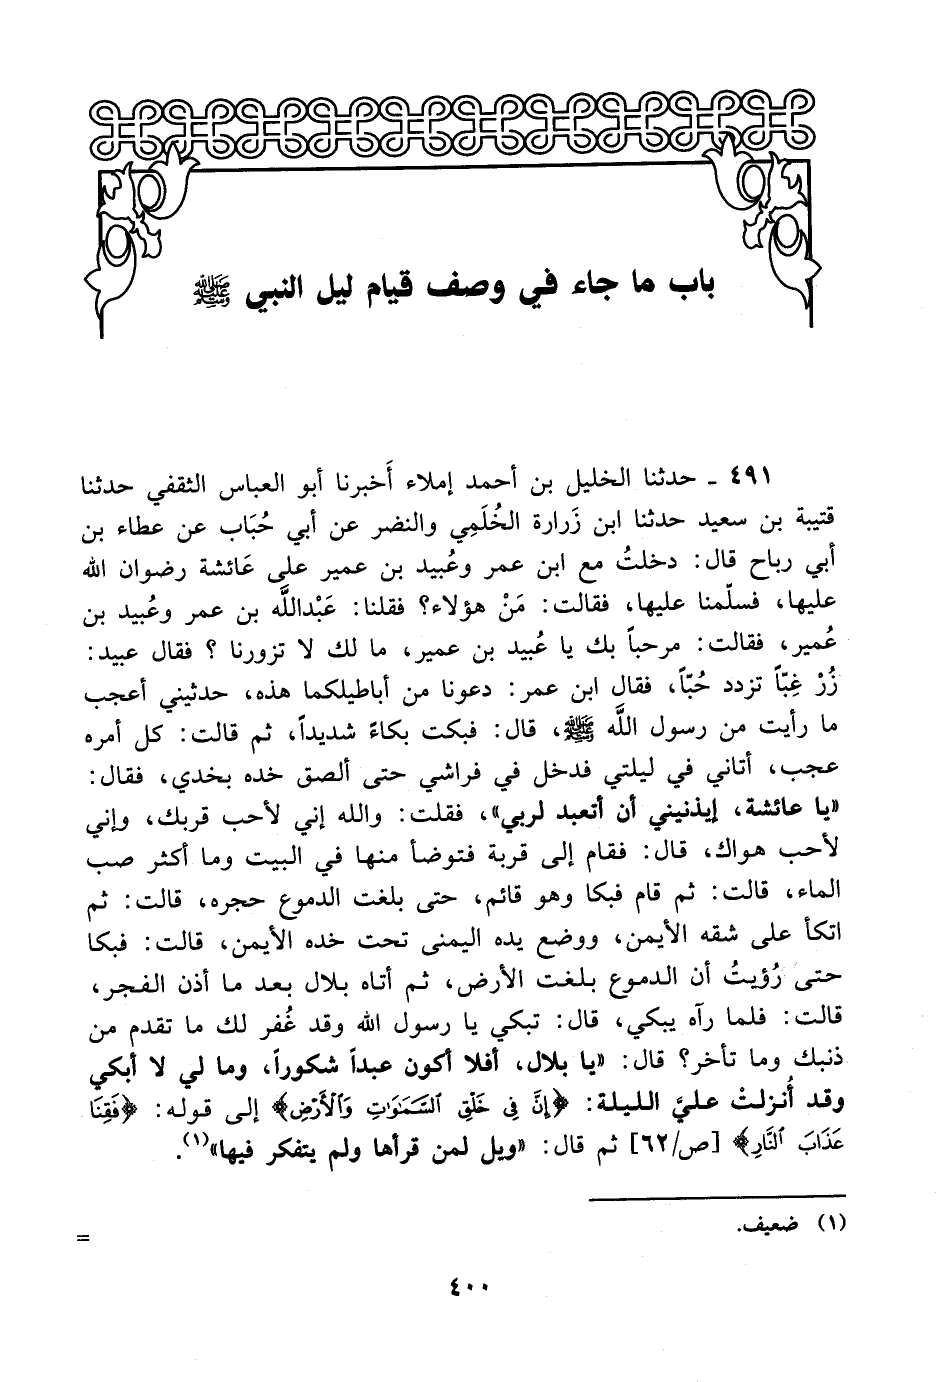 باب ما جاء في وصف قيام ليل النبي ﷺ
٤٩١ ـ حدثنا الخليل بن أحمد إملاء أَخبرنا أبو العباس الثقفي حدثنا
قتيبة بن سعيد حدثنا ابن زَرارة الخُلَمِي والنضر عن أبي حُبَاب عن عطاء بن
أبي رباح قال: دخلتُ مع ابن عمر وعُبيد بن عمير على عَائشة رضوان الله
عليها، فسلّمنا عليها، فقالت: مَنْ هؤلاء؟ فقلنا: عَبْداللَّه بن عمر وعُبيد بن
عُمير، فقالت: مرحباً بك يا عُبيد بن عمير، ما لك لا تزورنا ؟ فقال عبيد:
زُرْ غِبّاً تزدد حُبّاً، فقال ابن عمر: دعونا من أباطيلكما هذه، حدثيني أعجب
ما رأيت من رسول اللَّه ﷺ، قال: فبكت بكاءً شديداً، ثم قالت: كل أمره
عجب، أتاني في ليلتي فدخل في فراشي حتى ألصق خده بخدي، فقال:
«يا عائشة، إيذنيني أن أتعبد لربي»، فقلت: والله إني لأحب قربك، وإني
لأحب هواك، قال: فقام إلى قربة فتوضأ منها في البيت وما أكثر صب
الماء، قالت: ثم قام فبكا وهو قائم، حتى بلغت الدموع حجره، قالت: ثم
اتكأ على شقه الأيمن، ووضع يده اليمنى تحت خده الأيمن، قالت: فبكا
حتى رُؤيتُ أن الدموع بلغت الأرض، ثم أتاه بلال بعد ما أذن الفجر،
قالت: فلما رآه يبكي، قال: تبكي يا رسول الله وقد غُفر لك ما تقدم من
ذنبك وما تأخر؟ قال: «يا بلال، أفلا أكون عبداً شكوراً، وما لي لا أبكي
وقد أُنزلتْ عليَّ الليلة: ﴿إِنَّ فِي خَلْقِ السَّمَوَاتِ وَالْأَرْضِ﴾ إلى قوله: ﴿فَقِنَا
عَذَابَ النَّارِ﴾ [ص/٦٢] ثم قال: «ويل لمن قرأها ولم يتفكر فيها»(١).
(١) ضعيف.
=
٤٠٠